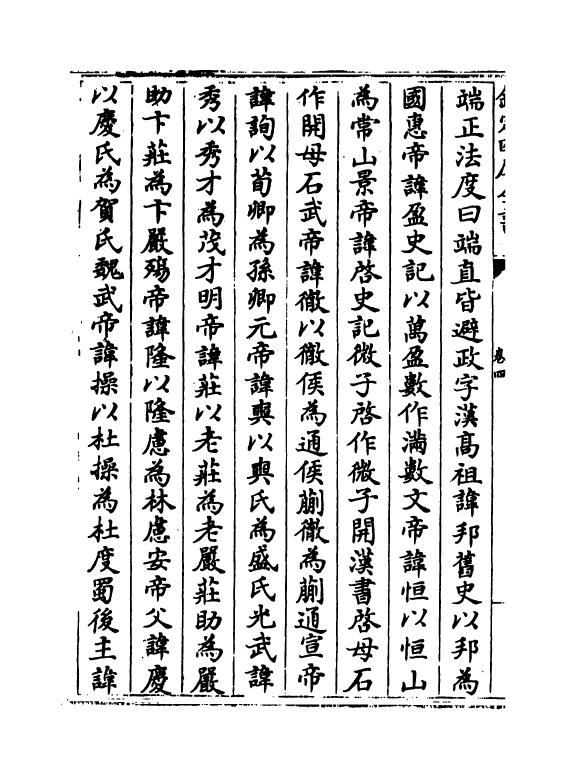 端正法度曰端直皆避政字漢髙祖諱邦舊史以邦為
國惠帝諱盈史記以萬盈數作滿數文帝諱恒以恒山
為常山景帝諱啓史記微子啓作微子開漢書啓母石
作開母石武帝諱徹以徹侯為通侯蒯徹為蒯通宣帝
諱詢以荀卿為孫卿元帝諱奭以奭氏為盛氏光武諱
秀以秀才為茂才明帝諱莊以老莊為老嚴莊助為嚴
助卞莊為卞嚴殤帝諱隆以隆慮為林慮安帝父諱慶
以慶氏為賀氏魏武帝諱操以杜操為杜度蜀後主諱
卷四